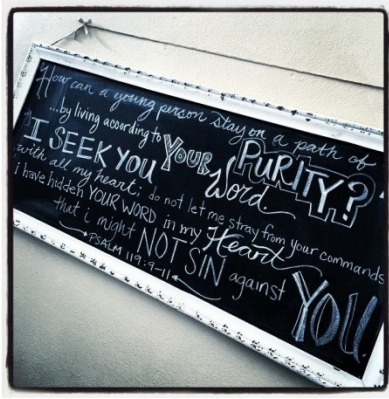 How can a young person stay on a path of
PURITY?
...by living according to YOUR Word
I SEEK YOU
with all my heart; do not let me stray from your commands
i have hidden YOUR WORD in my Heart
that i might NOT SIN against YOU.
PSALM 119:9-11